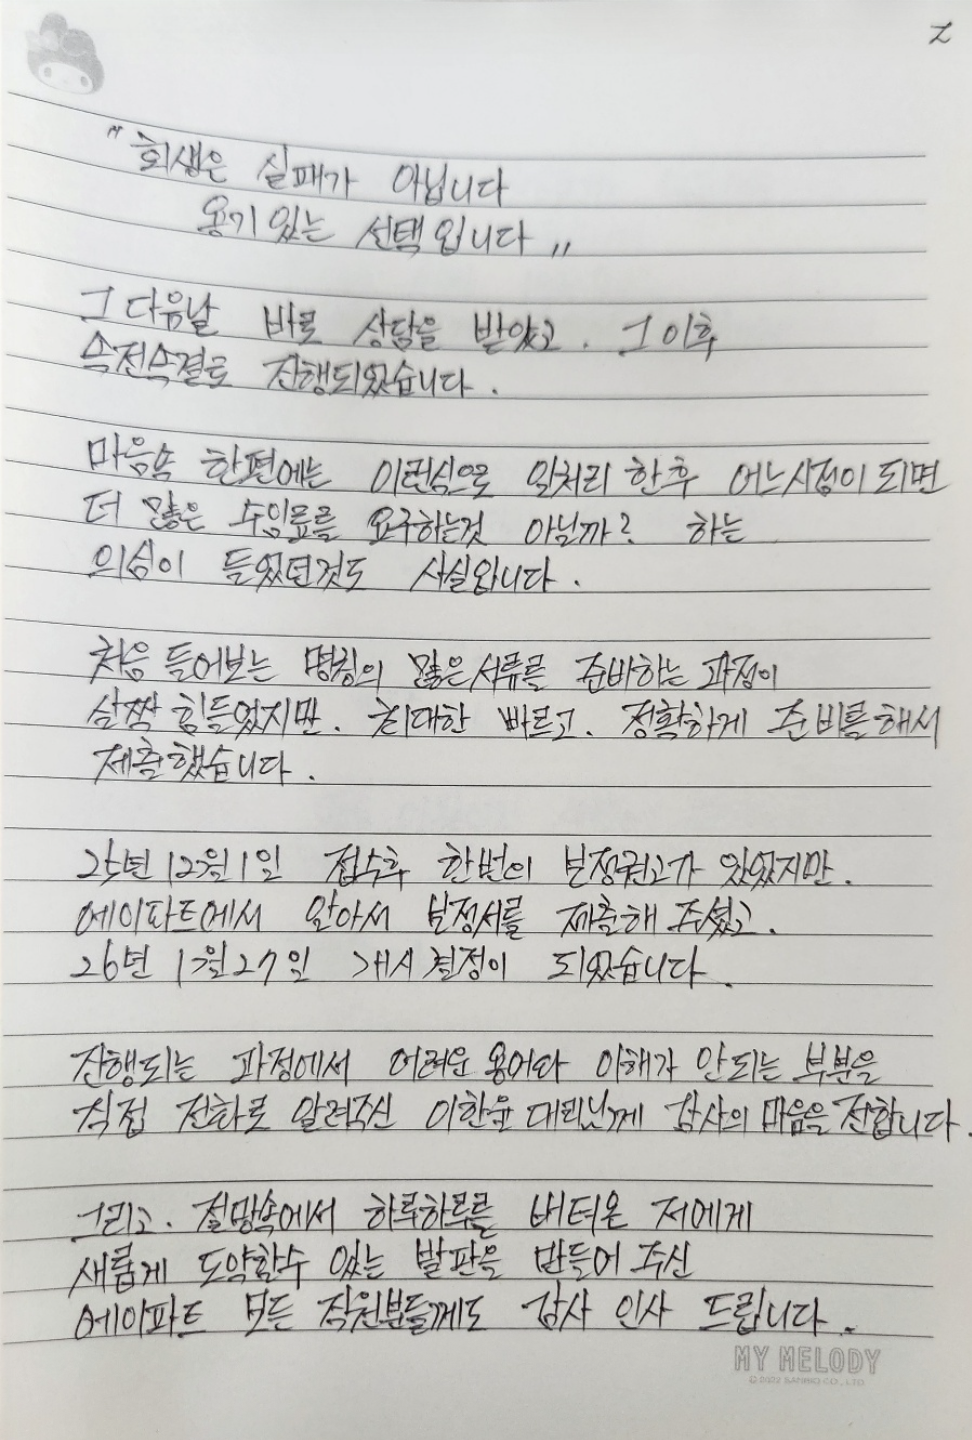 2
"회생은 실패가 아닙니다
용기있는 선택입니다"
그다음날 바로 상담을 받았고. 그이후
속전속결로 진행되었습니다.
마음속 한편에는 이런식으로 일처리 한후 어느시점이 되면
더 많은 수임료를 요구하는것 아닐까? 하는
의심이 들었던것도 사실입니다.
처음 들어보는 명칭의 많은서류를 준비하는 과정이
살짝 힘들었지만. 최대한 빠르고. 정확하게 준비를해서
제출했습니다.
25년 12월 1일 접수후 한번의 보정권고가 있었지만.
에이파트에서 알아서 보정서를 제출해 주셨고.
26년 1월 27일 개시결정이 되었습니다.
진행되는 과정에서 어려운 용어와 이해가 안되는 부분을
직접 전화로 알려주신 이한윤 대리님께 감사의 마음을 전합니다.
그리고. 절망속에서 하루하루를 버텨온 저에게
새롭게 도약할수 있는 발판을 만들어 주신
에이파트 모든 직원분들께도 감사 인사 드립니다.
MY MELODY
©2022 SANRIO CO., LTD.